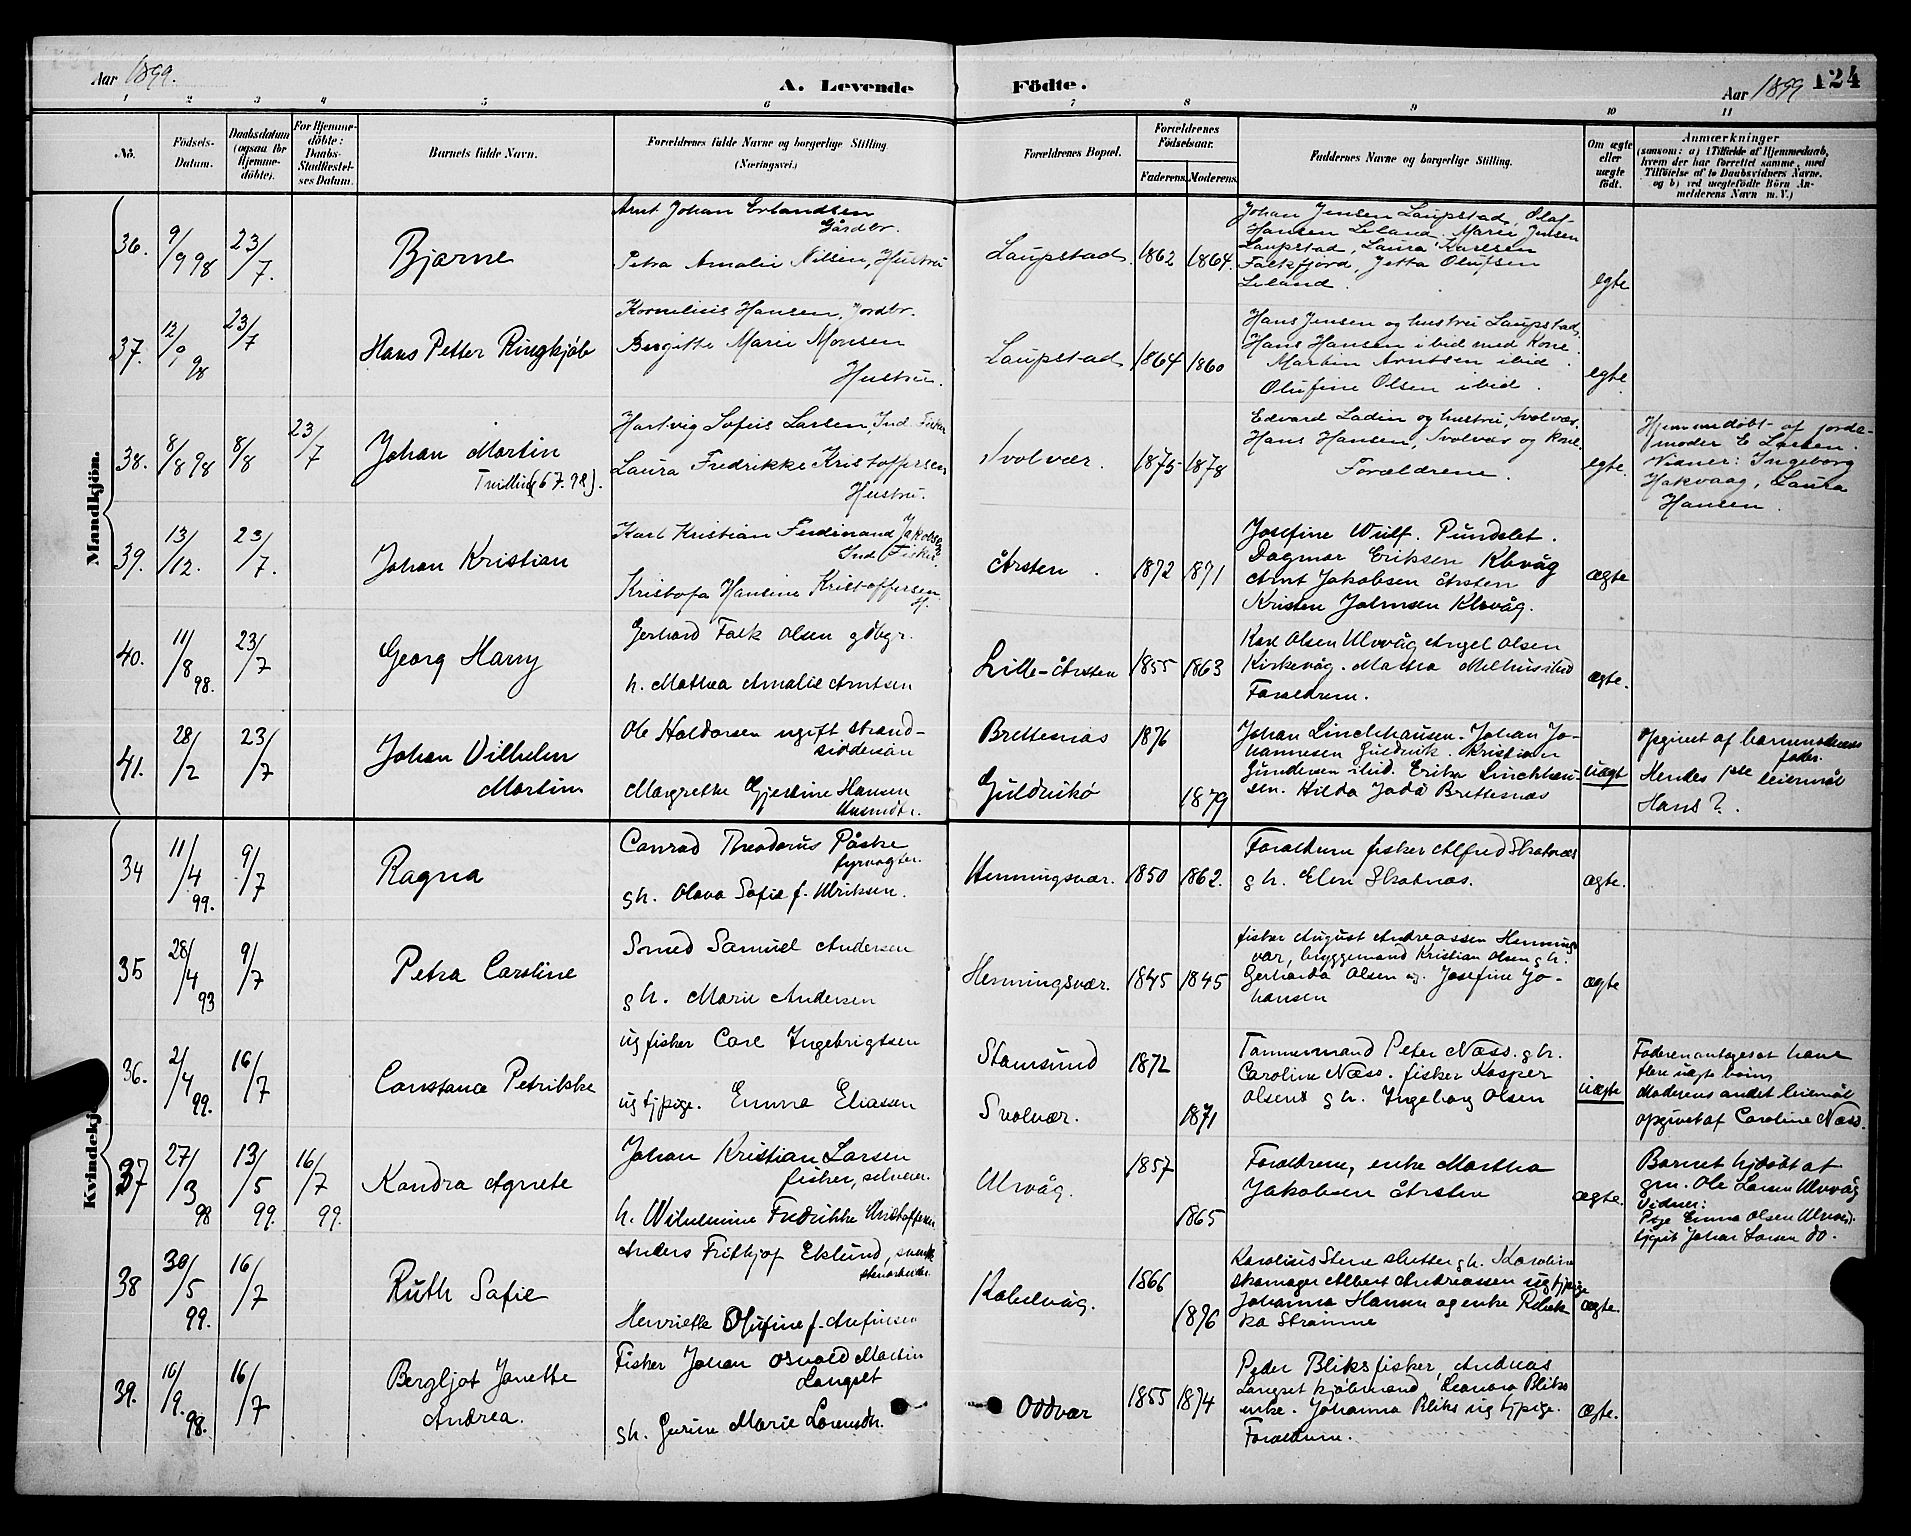 Aar 1899.
A. Levende Födte.
Aar 1899
124
1 2 3 4 5 6 7 8 9 10 11
No.
Födsels-Datum.
Daabsdatum (ogsaa for Hjemmedöbte).
For Hjemmedöbte: Daabs-Stadfæstelses Datum.
Barnets fulde Navn.
Forældrenes fulde Navne og borgerlige Stilling (Næringsvei.)
Forældrenes Bopæl.
Forældrenes Födselsaar.
Faderens. Moderens.
Faddernes Navne og borgerlig Stilling.
Om ægte eller uægte födt.
Anmærkninger
(saasom: a) i Tilfælde af Hjemmedaab,
hvem der har forrettet samme, med
Tilföielse af to Daabsvidners Navne.
og b) ved uægtefödte Börn An-
melderens Navn m. V.)
Mandkjön.
36. 9/9 98 23/7.
Bjarne
Arnt Johan Erlandsen
Gårdbr.
Petra Amalie Nilsen, Hustru
Laupstad. 1862 1864.
Johan Jensen Laupstad, Olaf
Hansen Leland. Marie Jensen
Laupstad, Laura Karlsen
Falkfjord, Jetta Olufsen
Leland.
egte
37. 12/9 98 23/7
Hans Petter Ringkjöb
Kornelius Hansen, Jordbr.
Birgitte Marie Monsen
Hustru.
Laupstad 1864 1860
Hans Jensen og hustru Laupstad
Hans Hansen ibid med Kone.
Martin Arntsen ibid
Olufine Olsen ibid.
egte.
38. 8/8 98 8/8 23/7
Johan Martin
Tvilling (67.98).
Hartvig Sofus Larsen, Ind. Fisker
Laura Fredrikke Kristoffersen
Hustru.
Svolvær. 1875 1878
Edvard Ladin og hustru, Svolvær,
Hans Hansen, Svolvær og kone
Forældrene.
egte.
Hjemmedøbt af jorde-
moder E Larsen.
Vidner: Ingeborg
Hakvaag, Laura
Hansen.
39. 13/12. 23/7.
Johan Kristian
Karl Kristian Ferdinand Jakobsen
Ind. Fisker.
Kristofa Hansine Kristoffersen
H.
Årsten. 1872 1871
Josefine Wulf. Pundslet.
Dagmar Eriksen Klovåg
Arnt Jakobsen Årsten
Kristen Johnsen Klovåg.
ægte
40. 11/8 98. 23/7
Georg Harry
Gerhard Falk Olsen gdbgr.
h. Mathea Amalie Arntsen
Lille-Årsten 1855 1863
Karl Olsen Ulvvåg Angel Olsen
Kirkevåg. Martha Melhus ibid
Forældrene.
ægte.
41. 28/2 23/7
Johan Vilhelm
Martin
Ole Haldorsen ugift strand-
siddersøn
Margrethe Gjertine Hansen
Husmdtr.
Brettesnæs
Guldvikø
1876
1879
Johan Linchhausen. Johan Jo-
hannesen Guldvik. Kristian
Gundersen ibid. Erika Linchhau-
sen. Hilda Jada Brettesnæs
uægt
Opgivet af barnemoderens
fader.
Hendes 1ste leiermål
Hans 2.
Kvindekj
34 11/4 99. 9/7
Ragna
Conrad Theodorus Påske
fyrvogter.
gh. Olava Sofie f. Ulriksen.
Henningsvær. 1850 1862.
Forældrene fisker Alfred Skotnæs
gh. Elen Skotnæs.
ægte.
35 28/4 93 9/7
Petra Caroline
Smed Samuel Andersen
gh. Marie Andersen
Henningsvær. 1845 1845
fisker August Andreassen Hennings
vær, bryggemand Kristian Olsen gh.
Gerharda Olsen ug. Josefine Jo-
hansen
ægte
36. 2/4 99. 16/7
Constance Petrikke
ug fisker Carl Ingebrigtsen
ug tjpige. Emma Eliassen
Stamsund
Svolvær.
1872
1871
Tømmermand Peter Næss. gh.
Caroline Næss. fisker Kasper
Olsen gh. Ingeborg Olsen
uægte
Faderen antages at have
flere uægte børn,
Moderens andet leiermål
opgivet af Caroline Næss.
37 27/3 98 13/5 99. 16/7 99.
Kandra Agnete
Johan Kristian Larsen
fisker, selveier.
h. Wilhelmine Fredrikke Kristoffersen
Ulvåg.
1857
1865
Forældrene, enke Martha
Jakobsen Årsten
ægte.
Barnet hjdøbt af
gm. Ole Larsen Ulvvåg
Vidner:
Pige Emma Olsen Ulvvåg
Johan Larsen do.
38 30/5 99. 16/7
Ruth Sofie
Anders Frithjof Eklund, svensk
stenarbeider.
Henriette Olufine f. Anfinsen
Kabelvåg.
1866
1876
Karolius Stene slutter gh. Karoline
skomager Albert Andreassen ug tjpige
Johanna Hansen og enke Rebek
ka Strømme
ægte.
39. 10/9. 98. 16/7
Bergljot Janette
Andrea.
Fisker Johan Osvald Martin
Langset
gh. Gurine Marie Lorensdtr.
Oddvær 1855 1874
Peder Bliks fisker, Andreas
Langset kjøbmand, Leonora Bliks
enke. Johanna Bliks ug tjpige.
Forældrene.
ægte.